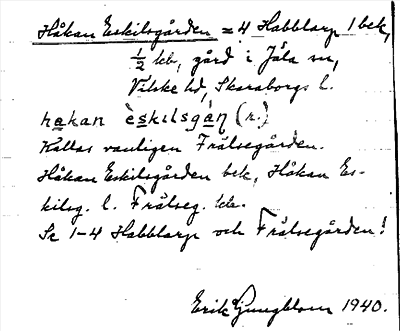 Håkan Eskilsgården = 4 Habblarp 1 bek,
1/2 kb, gård i Jäla sn,
Vilske hd, Skaraborgs l.
hakan èskilsgán (r.)
Kallas vanligen Frälsegården.
Håkan Eskilsgården bek, Håkan Es-
kilsg. l. Frälseg. kb.
Se 1-4 Habblarp och Frälsegården!
Erik Ljungblom 1940.